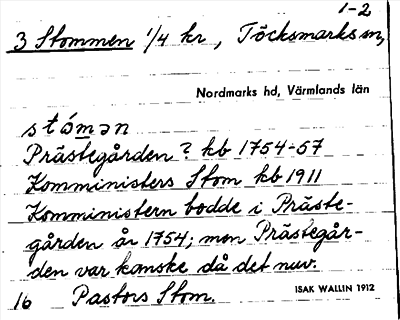 1-2
3 Stommen 1/4 kr, Töcksmarks sn,
Nordmarks hd, Värmlands län
stómən
Prästegården? kb 1754-57
Komministers Stom kb 1911
Komministern bodde i Präste-
gården år 1754; men Prästegår-
den var kanske då det nuv.
16 Pastors Stom.
ISAK WALLIN 1912